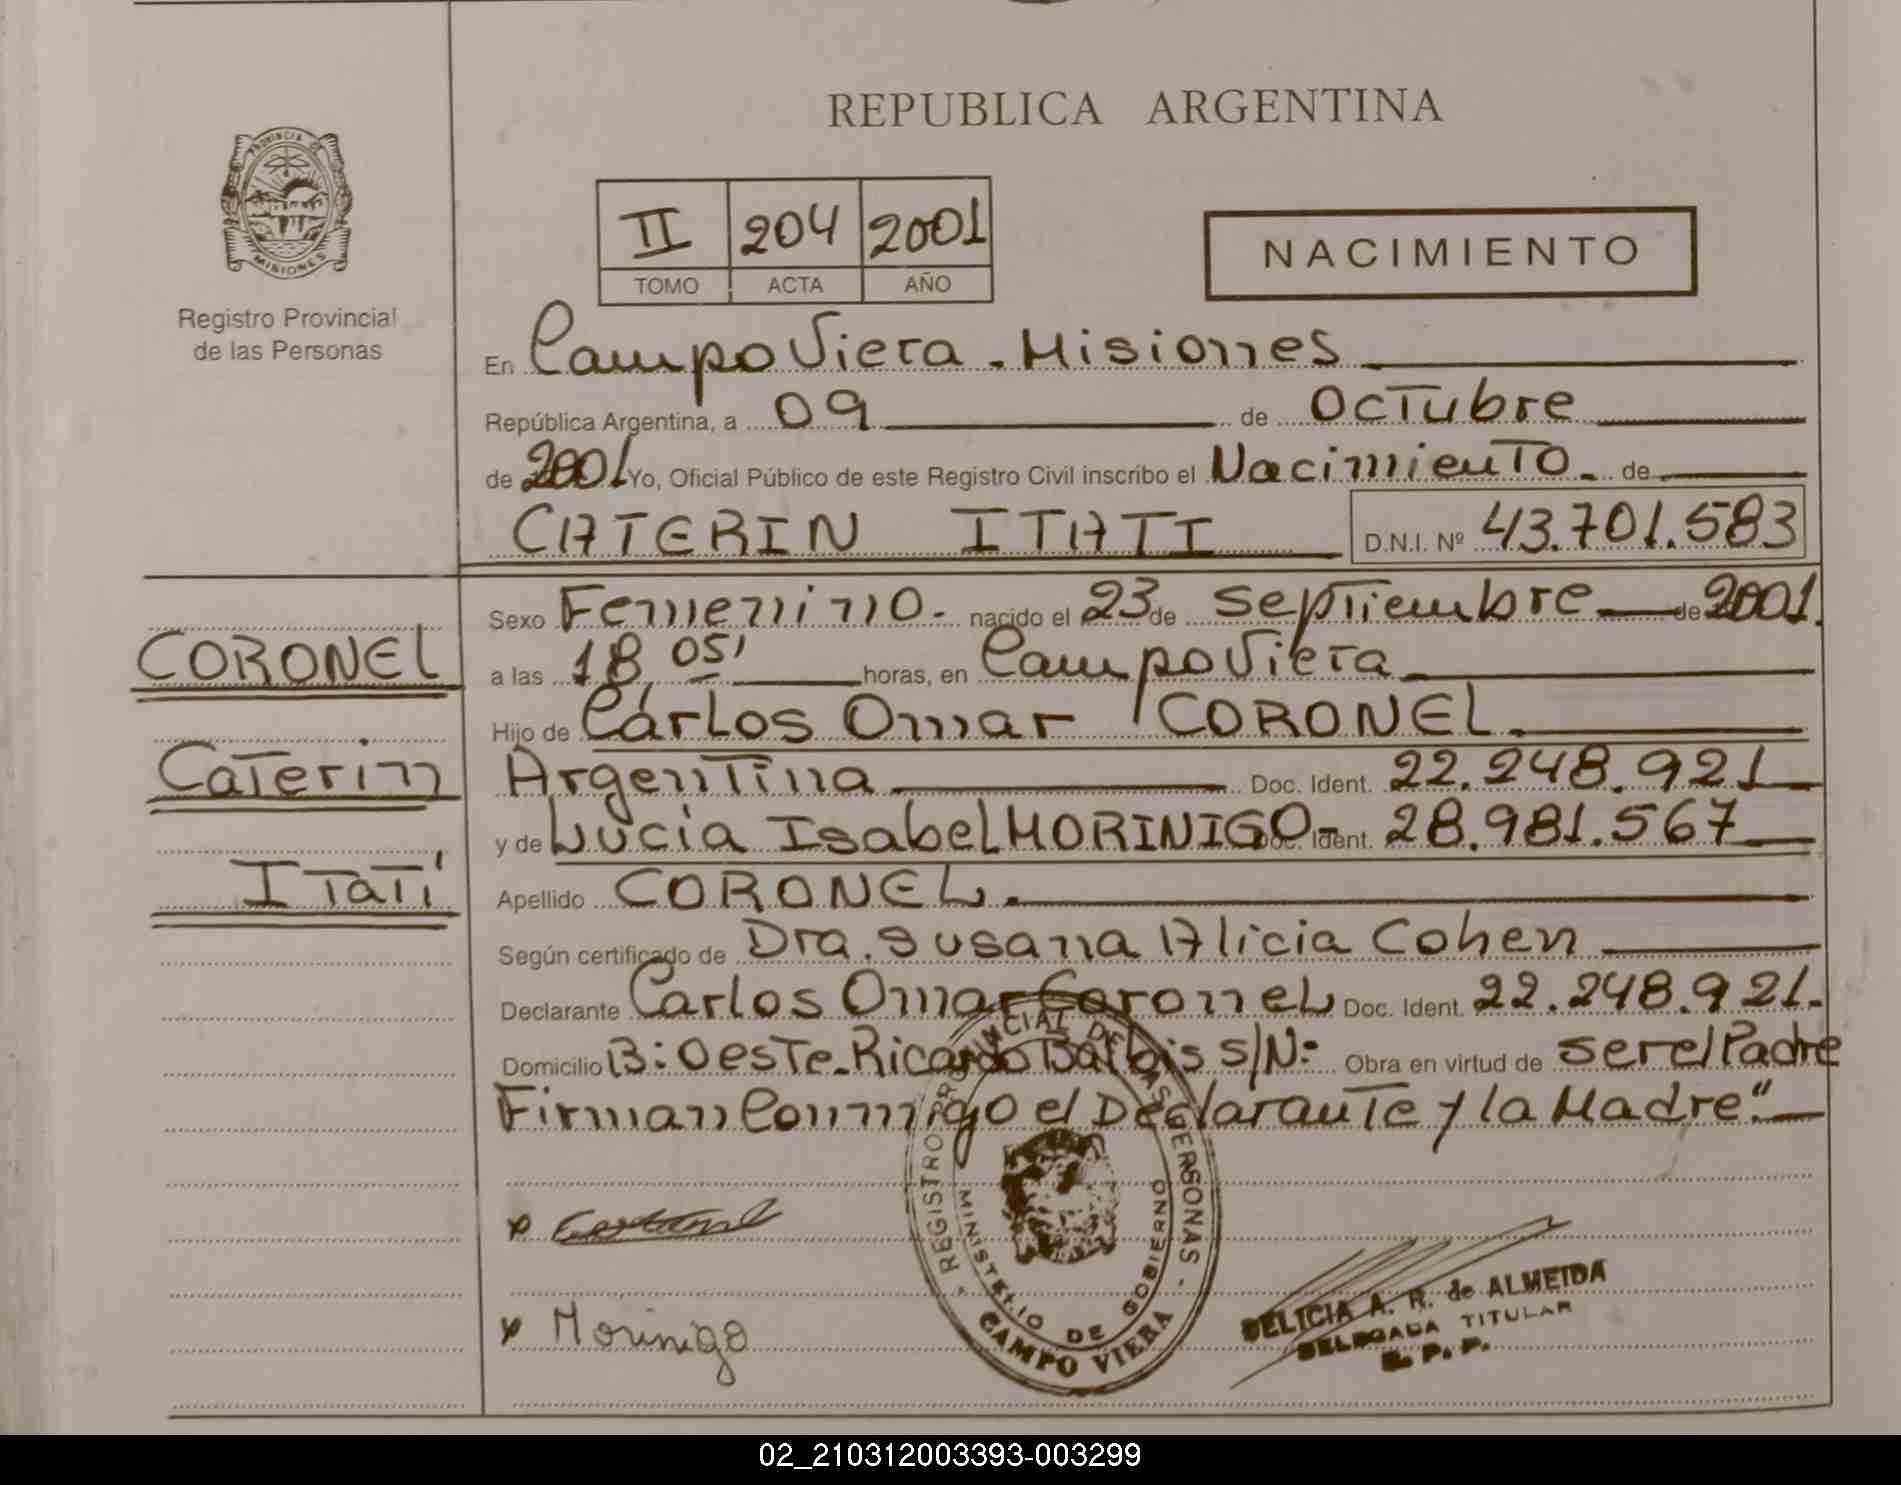 REPUBLICA ARGENTINA
PROVINCIA DE
MISIONES
Registro Provincial
de las Personas
II 204 2001
TOMO ACTA AÑO
NACIMIENTO
En Campo Viera - Misiones
República Argentina, a 09 de Octubre
de 2001 Yo, Oficial Público de este Registro Civil inscribo el Nacimiento - de
CATERIN ITATI D.N.I. Nº 43.701.583
Sexo Femenino - nacido el 23 de Septiembre de 2001.
CORONEL
a las 18 05' horas, en Campo Viera
Hijo de Carlos Omar CORONEL.
Caterin
Argentina Doc. Ident. 22.248.921
y de Lucia Isabel MORINIGO - Doc. Ident. 28.981.567
Itatí
Apellido CORONEL.
Según certificado de Dra. Susana Alicia Cohen
Declarante Carlos Omar Coronel Doc. Ident. 22.248.921.-
Domicilio B: Oeste - Ricardo Balbis S/N:- Obra en virtud de ser el Padre
Firman Conmigo el Declarante y la Madre"
REGISTRO PROVINCIAL DE LAS PERSONAS
MINISTERIO DE GOBIERNO
CAMPO VIERA
x
x Morinigo
DELICIA A. R. de ALMEIDA
DELEGADA TITULAR
R. P. P.
02_210312003393-003299